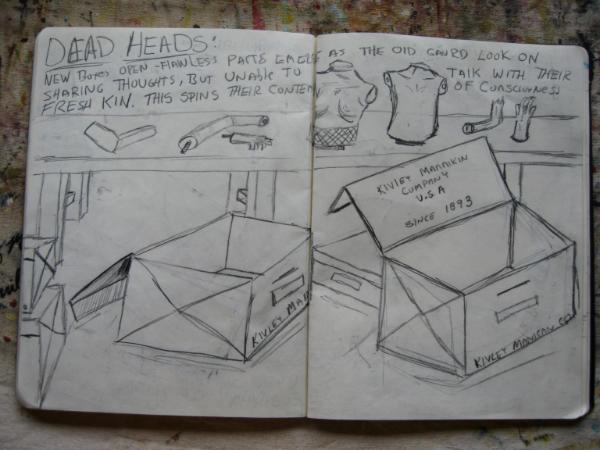 DEAD HEADS:
NEW BOXES OPEN - FLAWLESS PARTS EMERGE AS THE OLD GAURD LOOK ON
SHARING THOUGHTS, BUT UNABLE TO TALK WITH THEIR
FRESH KIN. THIS SPINS THEIR OF CONSCIOUSNESS
KIVLEY MANNIKIN
CUMPANY
U.S.A
SINCE 1893
KIVLEY
KIVLEY